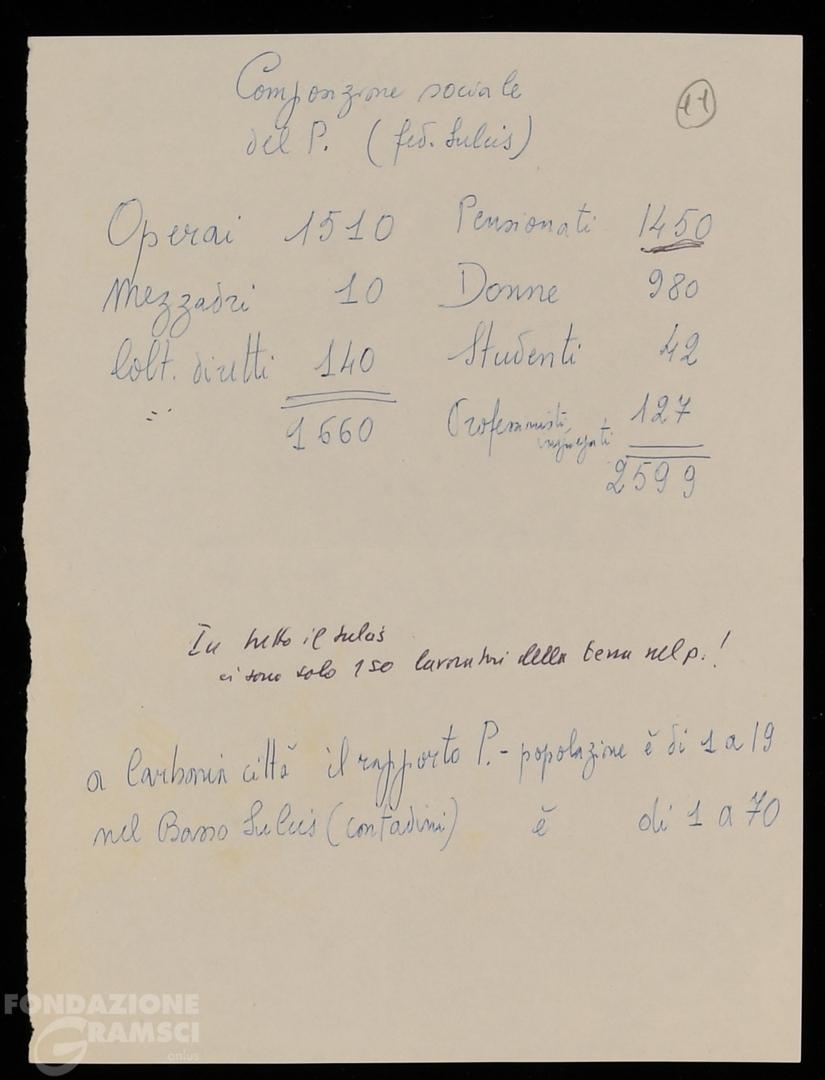 Composizione sociale
del P. (fed. Sulcis)
11
Operai 1510
Mezzadri 10
Colt. diretti 140
1660
Pensionati 1450
Donne 980
Studenti 42
Professionisti, impiegati 127
2599
In tutto il Sulcis
ci sono solo 150 lavoratori della terra nel p.!
a Carbonia città il rapporto P.- popolazione è di 1 a 19
nel Basso Sulcis (contadini) è di 1 a 70
FONDAZIONE
GRAMSCI
onlus